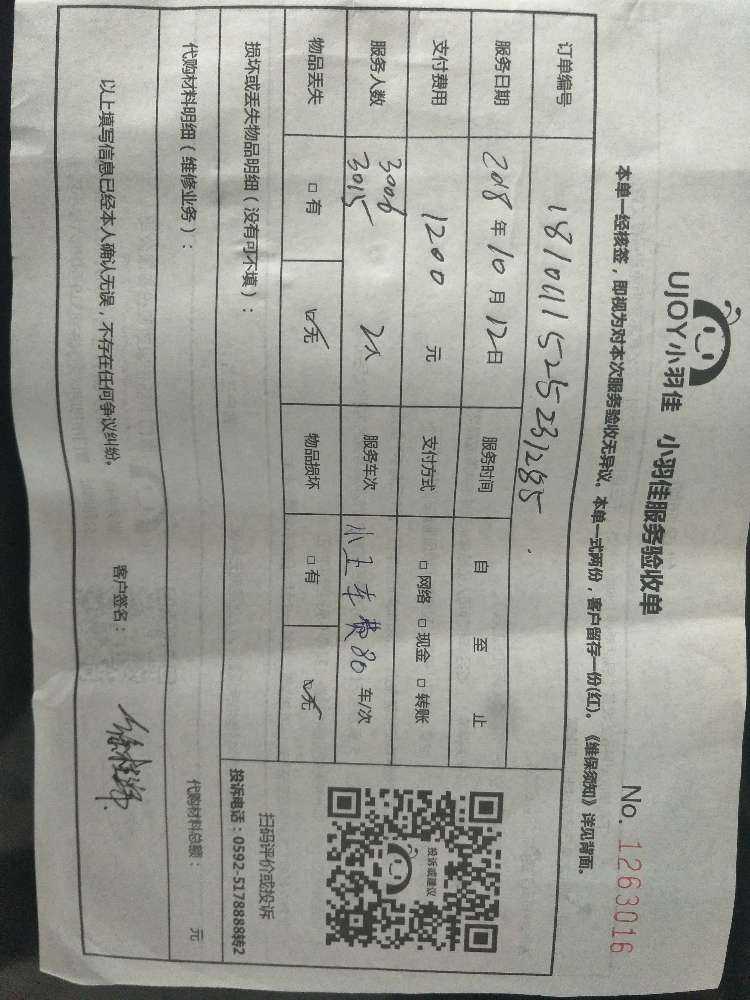 UJOY小羽佳 小羽佳服务验收单
No. 1263016
本单一经核签，即视为对本次服务验收无异议。本单一式两份，客户留存一份(红)。《维保须知》详见背面。
订单编号 181011525231285
服务日期 2018年10月12日 服务时间 自 至 止
支付费用 1200 元 支付方式 □网络 □现金 □转账
服务人数 3006 3015 2人 服务车次 小王车费80 车/次
物品丢失 □有 ☑无 物品损坏 □有 ☑无
损坏或丢失物品明细（没有可不填）：
代购材料明细（维修业务）：
代购材料总额： 元
以上填写信息已经本人确认无误，不存在任何争议纠纷。
客户签名：
投诉或建议
扫码评价或投诉
投诉电话：0592-5178888转2